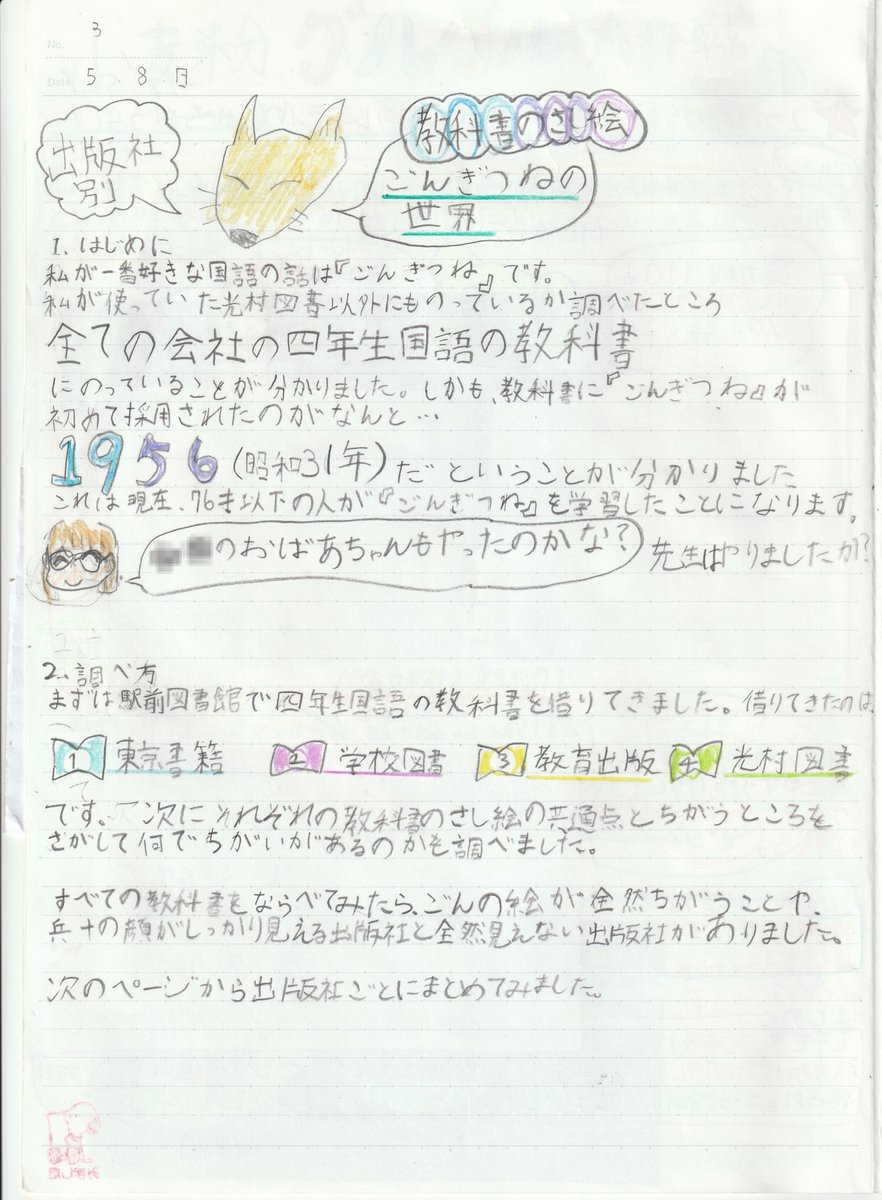 No. 3
Date 5.8.日
出版社
別
教科書のさし絵
ごんぎつねの
世界
1. はじめに
私が一番好きな国語の話は『ごんぎつね』です。
私が使っていた光村図書以外にものっているか調べたところ
全ての会社の四年生国語の教科書
にのっていることが分かりました。しかも、教科書に『ごんぎつね』が
初めて採用されたのがなんと…
1956(昭和31年)だということが分かりました
これは現在、76才以下の人が『ごんぎつね』を学習したことになります。
のおばあちゃんもやったのかな?
先生はやりましたか?
2. 調べ方
まずは駅前図書館で四年生国語の教科書を借りてきました。借りてきたのは、
1 東京書籍 2 学校図書 3 教育出版 4 光村図書
です。次にそれぞれの教科書のさし絵の共通点とちがうところを
さがして何でちがいがあるのかも調べました。
すべての教科書をならべてみたら、ごんの絵が全然ちがうことや、
兵十の顔がしっかり見える出版社と全然見えない出版社がありました。
次のページから出版社ごとにまとめてみました。